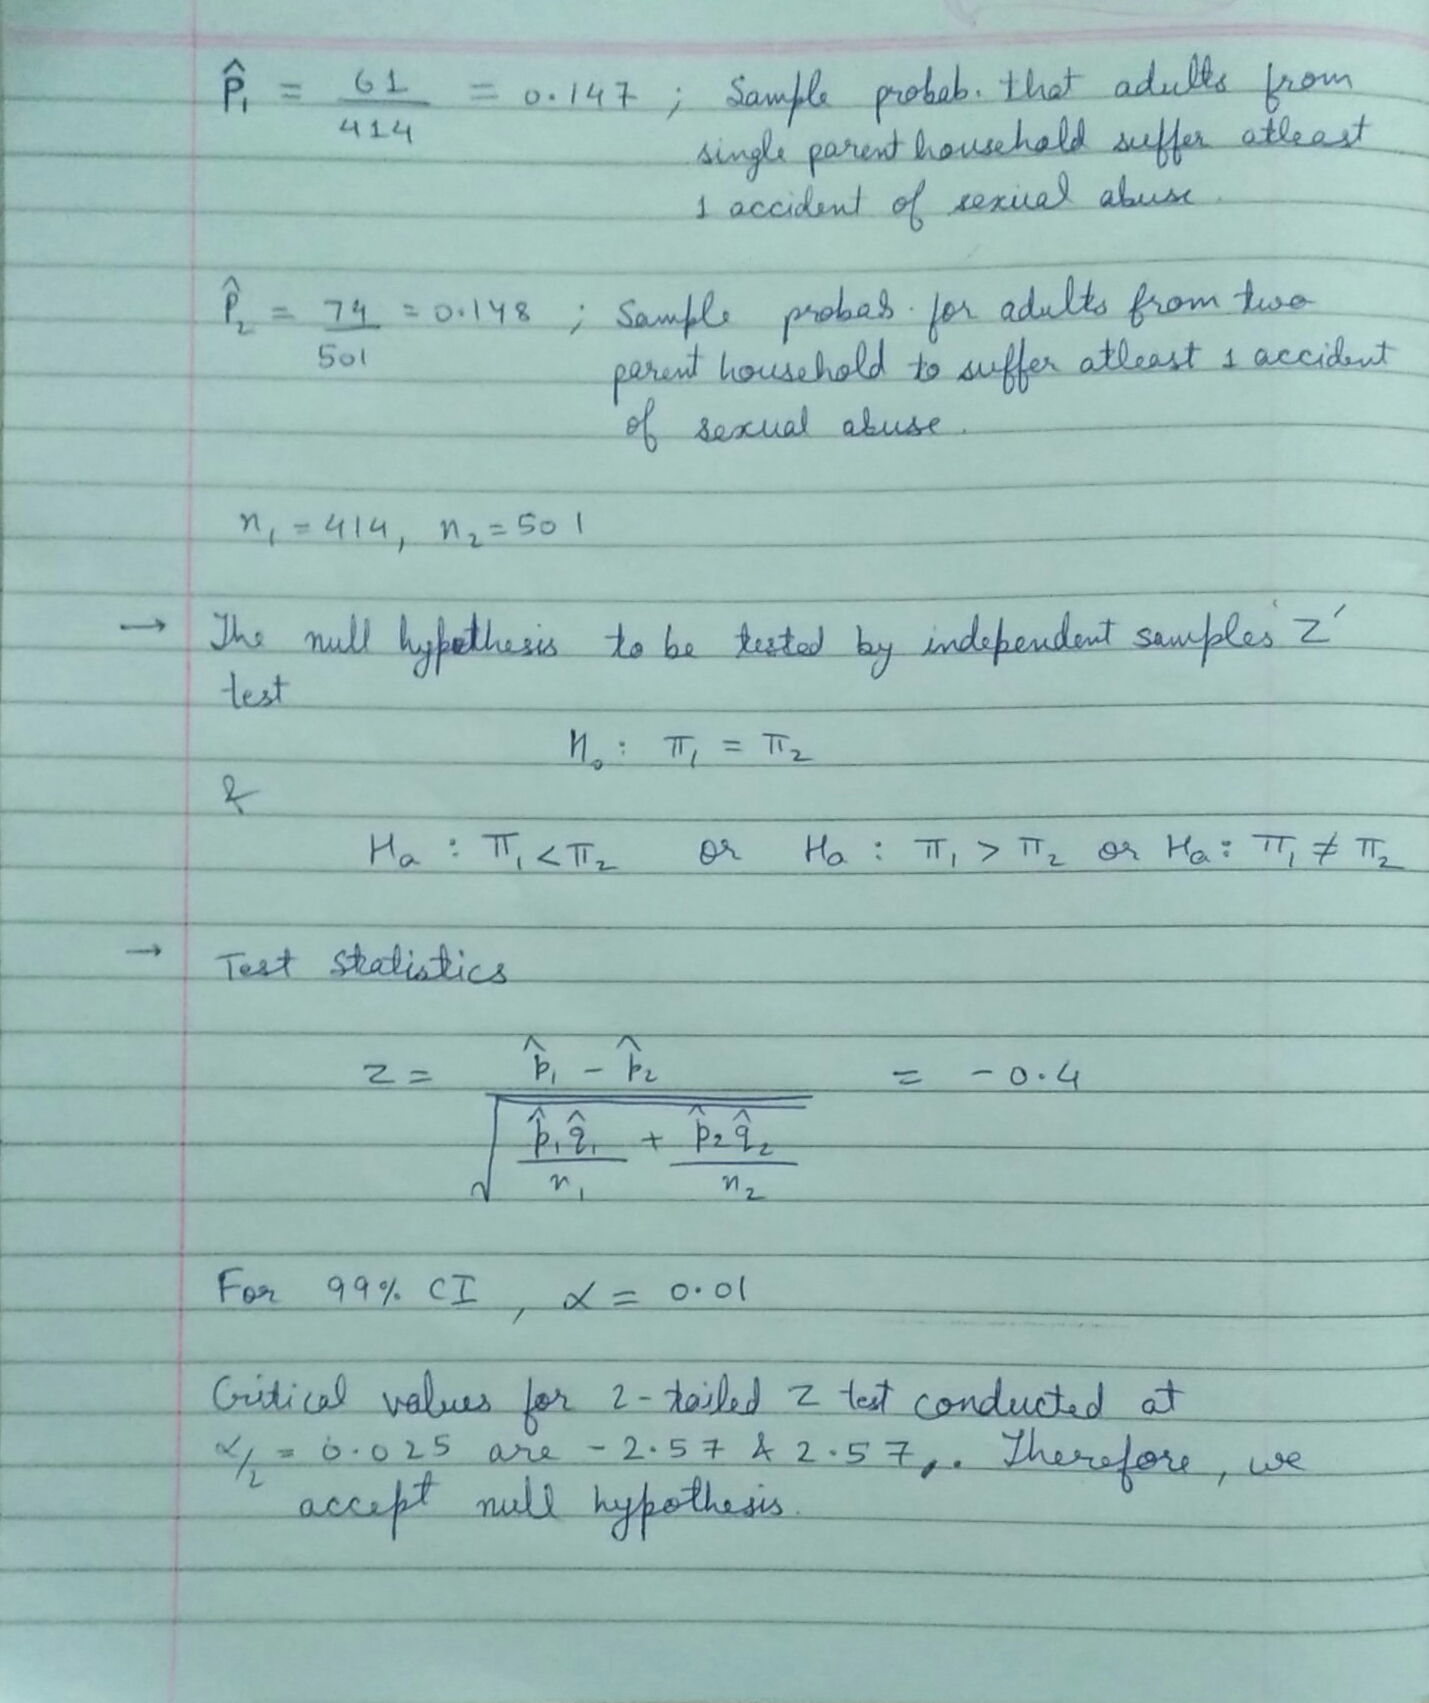 P̂₁ = 61/414 = 0.147 ; Sample probab. that adults from
single parent household suffer atleast
1 accident of sexual abuse.
P̂₂ = 74/501 = 0.148 ; Sample probab. for adults from two
parent household to suffer atleast 1 accident
of sexual abuse.
n₁ = 414, n₂ = 501
→ The null hypothesis to be tested by independent samples 'Z'
test
H₀ : π₁ = π₂
&
Ha : π₁ < π₂ or Ha : π₁ > π₂ or Ha : π₁ ≠ π₂
→ Test statistics
z = (p̂₁ - p̂₂) / √(p̂₁q̂₁/n₁ + p̂₂q̂₂/n₂) = -0.4
For 99% CI, α = 0.01
Critical values for 2-tailed z test conducted at
α/2 = 0.025 are -2.57 & 2.57,. Therefore, we
accept null hypothesis.